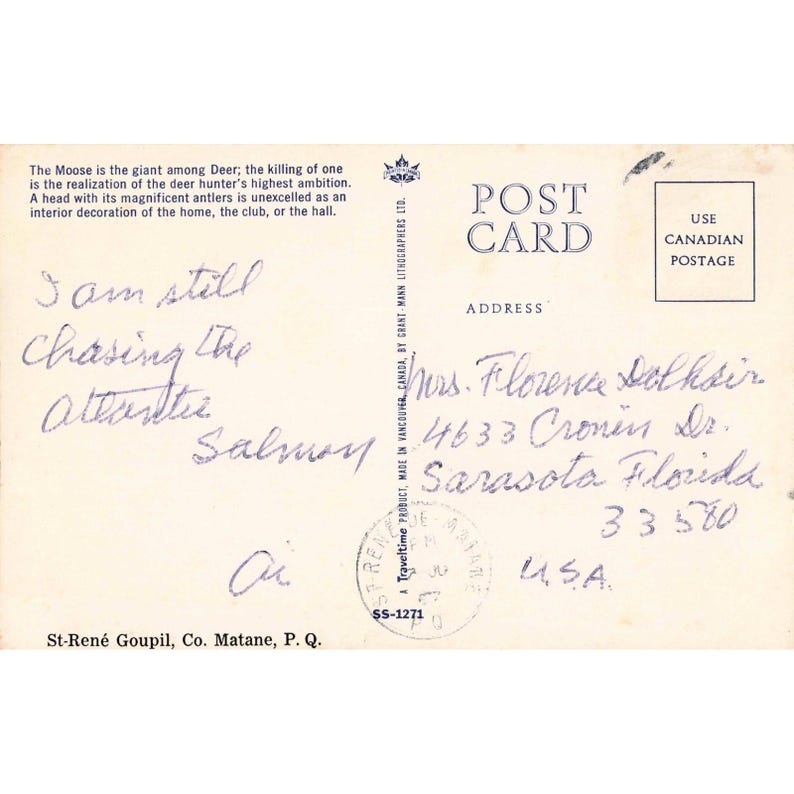 The Moose is the giant among Deer; the killing of one
is the realization of the deer hunter's highest ambition.
A head with its magnificent antlers is unexcelled as an
interior decoration of the home, the club, or the hall.
I am still
Chasing the
Atlantic
Salmon
St-René Goupil, Co. Matane, P. Q.
A Traveltime PRODUCT, MADE IN VANCOUVER, CANADA, BY GRANT-MANN LITHOGRAPHERS LTD.
SS-1271
POST
CARD
USE
CANADIAN
POSTAGE
ADDRESS
Mrs. Florence
4633 Cronin Dr.
Sarasota Florida
33580
U.S.A.
ST-RENÉ-DE-MATANE
PM
P Q